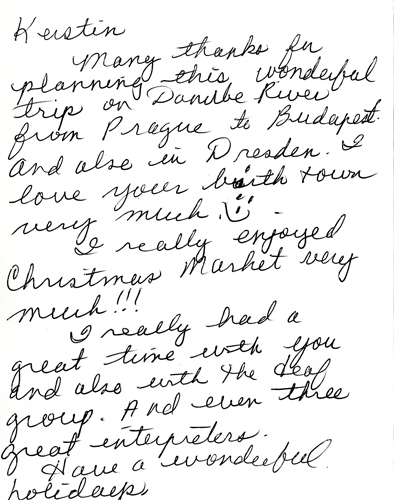 Kerstin
Many thanks for
planning this wonderful
trip on Danube River
from Prague to Budapest.
And also in Dresden. I
love your birth town
very much.
I really enjoyed
Christmas Market very
much!!!
I really had a
great time with you
and also with the deaf
group. And even three
great interpreters.
Have a wonderful
holidays